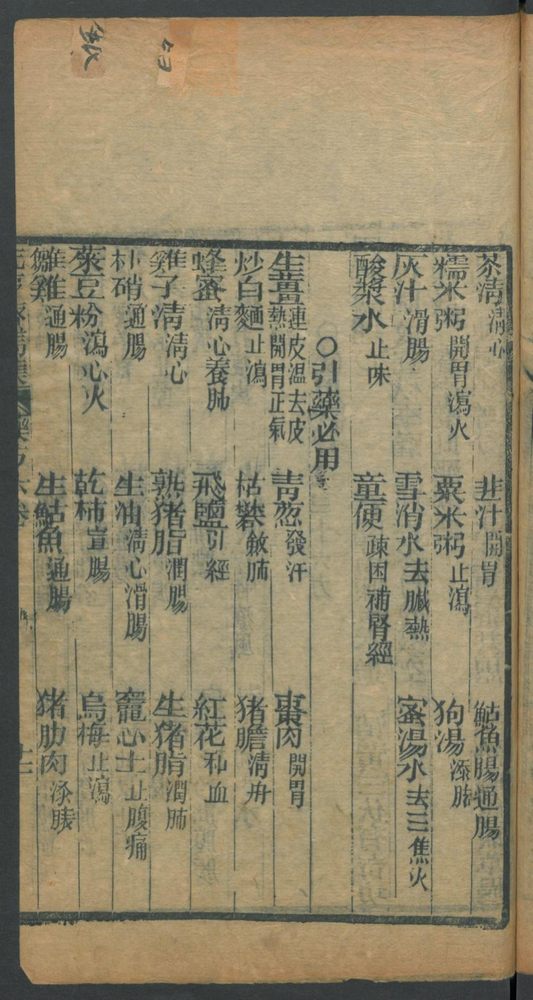 茶清清心 韭汁開胃 鮎魚腸通腸
糯米粥開胃瀉火 粟米粥止瀉 狗湯添膘
灰汁滑腸 雪消水去臟熱 蜜湯水去三焦火
酸漿水止味 童便踈困補腎經
○引藥必用
生薑連皮温去皮熱開胃正氣 青葱發汗 棗肉開胃
炒白麵止瀉 枯礬斂肺 猪膽清
蜂蜜清心養肺 飛鹽引經 紅花和血
雞子清清心 熟猪脂潤腸 生猪脂潤肺
朴硝通腸 生油清心滑腸 竈心土止腹痛
菉豆粉瀉心火 乾柿宣腸 烏梅止瀉
雛雞通腸 生鮎魚通腸 猪肋肉添膘
十二